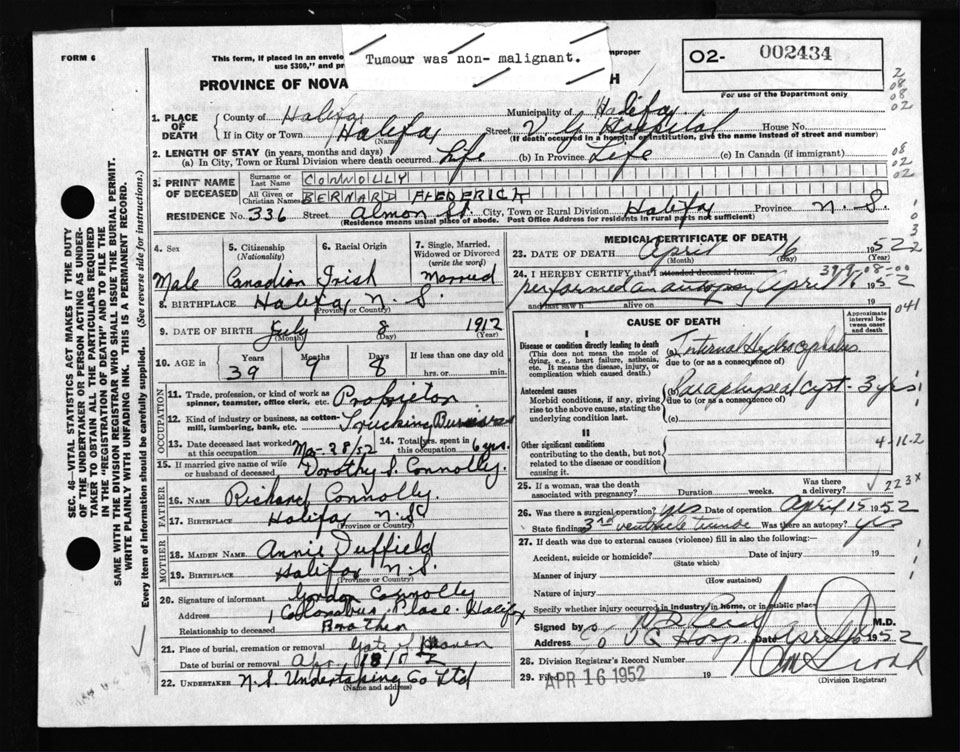 FORM 6
This form, if placed in an envelo
use $300," and pr
Tumour was non- malignant.
mproper
PROVINCE OF NOVA
H
O2- 002434
For use of the Department only
2
08
08
02
1. PLACE OF DEATH
County of Halifax Municipality of Halifax
If in City or Town Halifax Street V. G. Hospital House No.
(Name) (If death occurred in a hospital or institution, give the name instead of street and number)
2. LENGTH OF STAY (in years, months and days)
(a) In City, Town or Rural Division where death occurred Life (b) In Province Life (c) In Canada (if immigrant)
08
02
02
3. PRINT NAME OF DECEASED
Surname or Last Name CONNOLLY
All Given or Christian Names BERNARD FREDERICK
RESIDENCE No. 336 Street Almon St. City, Town or Rural Division Halifax Province N. S.
(Residence means usual place of abode. Post Office Address for rural parts not sufficient)
4. Sex
Male
5. Citizenship (Nationality)
Canadian
6. Racial Origin
Irish
7. Single, Married, Widowed or Divorced (write the word)
Married
8. BIRTHPLACE Halifax N. S.
(Province or Country)
9. DATE OF BIRTH July 8 1912
(Month) (Day) (Year)
10. AGE in Years Months Days If less than one day old
39 9 8 hrs. or min.
OCCUPATION
11. Trade, profession, or kind of work as spinner, teamster, office clerk, etc. Proprietor
12. Kind of industry or business, as cotton-mill, lumbering, bank, etc. Trucking Business
13. Date deceased last worked at this occupation Mar 28/52
14. Total yrs. spent in this occupation 6 yrs.
15. If married give name of wife or husband of deceased Dorothy S. Connolly.
FATHER
16. NAME Richard Connolly.
17. BIRTHPLACE Halifax N.S.
(Province or Country)
MOTHER
18. MAIDEN NAME Annie Duffield
19. BIRTHPLACE Halifax N.S.
(Province or Country)
20. Signature of informant Gordon Connolly
Address 1 Columbus Place. Halifax
Relationship to deceased Brother
21. Place of burial, cremation or removal Gate of Heaven
Date of burial or removal Apr 18/52
22. UNDERTAKER N.S. Undertaking Co Ltd
(Name and address)
SEC. 46—VITAL STATISTICS ACT MAKES IT THE DUTY
OF THE UNDERTAKER OR PERSON ACTING AS UNDER-
TAKER TO OBTAIN ALL THE PARTICULARS REQUIRED
IN THE "REGISTRATION OF DEATH" AND TO FILE THE
SAME WITH THE DIVISION REGISTRAR WHO SHALL ISSUE THE BURIAL PERMIT.
WRITE PLAINLY WITH UNFADING INK. THIS IS A PERMANENT RECORD.
Every item of information should be carefully supplied. (See reverse side for instructions.)
MEDICAL CERTIFICATE OF DEATH
23. DATE OF DEATH April 16 1952
(Month) (Day) (Year)
24. I HEREBY CERTIFY that I attended deceased from
performed an autopsy April 16 1952
and last saw h alive on 19
CAUSE OF DEATH
Approximate interval between onset and death
I
Disease or condition directly leading to death
(This does not mean the mode of dying, e.g., heart failure, asthenia, etc. It means the disease, injury, or complication which caused death.)
(a) Internal Hydrocephalus
due to (or as a consequence of)
Antecedent causes
Morbid conditions, if any, giving rise to the above cause, stating the underlying condition last.
(b) Paraphyseal cyst - 3 yrs
due to (or as a consequence of)
(c)
II
Other significant conditions contributing to the death, but not related to the disease or condition causing it.
041
4-11-2
223X
25. If a woman, was the death associated with pregnancy? Duration weeks. Was there a delivery?
26. Was there a surgical operation? yes Date of operation April 15 1952
State findings 3rd ventricle Was there an autopsy? yes
27. If death was due to external causes (violence) fill in also the following:—
Accident, suicide or homicide? Date of injury 19
(State which)
Manner of injury
(How sustained)
Nature of injury
Specify whether injury occurred in industry, in home, or in public place
Signed by M.D.
Address c/o V G Hosp. Date April 16 1952
28. Division Registrar's Record Number
29. Filed APR 16 1952 19
(Division Registrar)